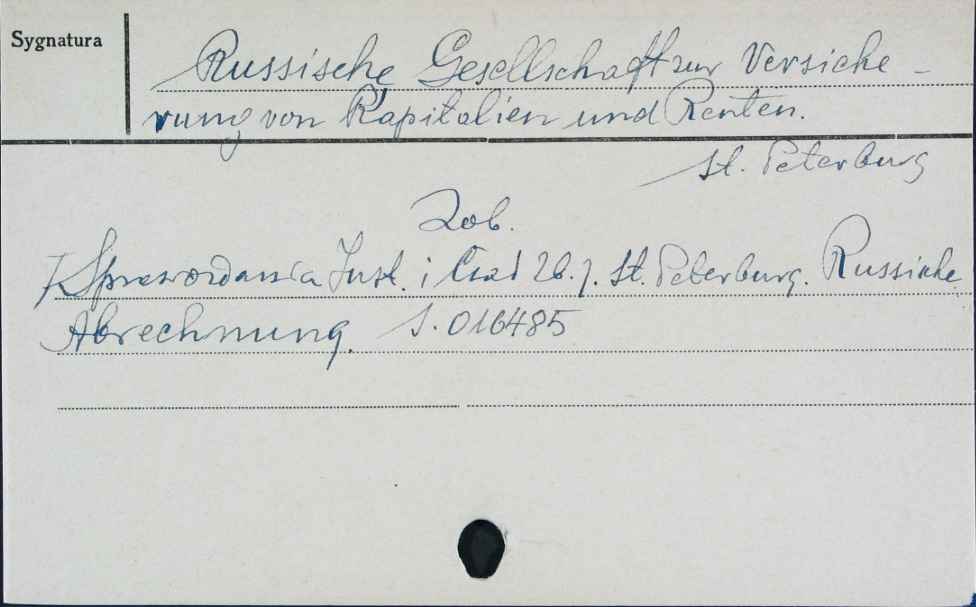 Sygnatura
Russische Gesellschaft zur Versiche-
rung von Kapitalien und Renten.
St. Peterburg
Zob.
Sprawozdania Inst. i Czas Zb. j. St. Peterburg. Russische
Abrechnung. S. 016485